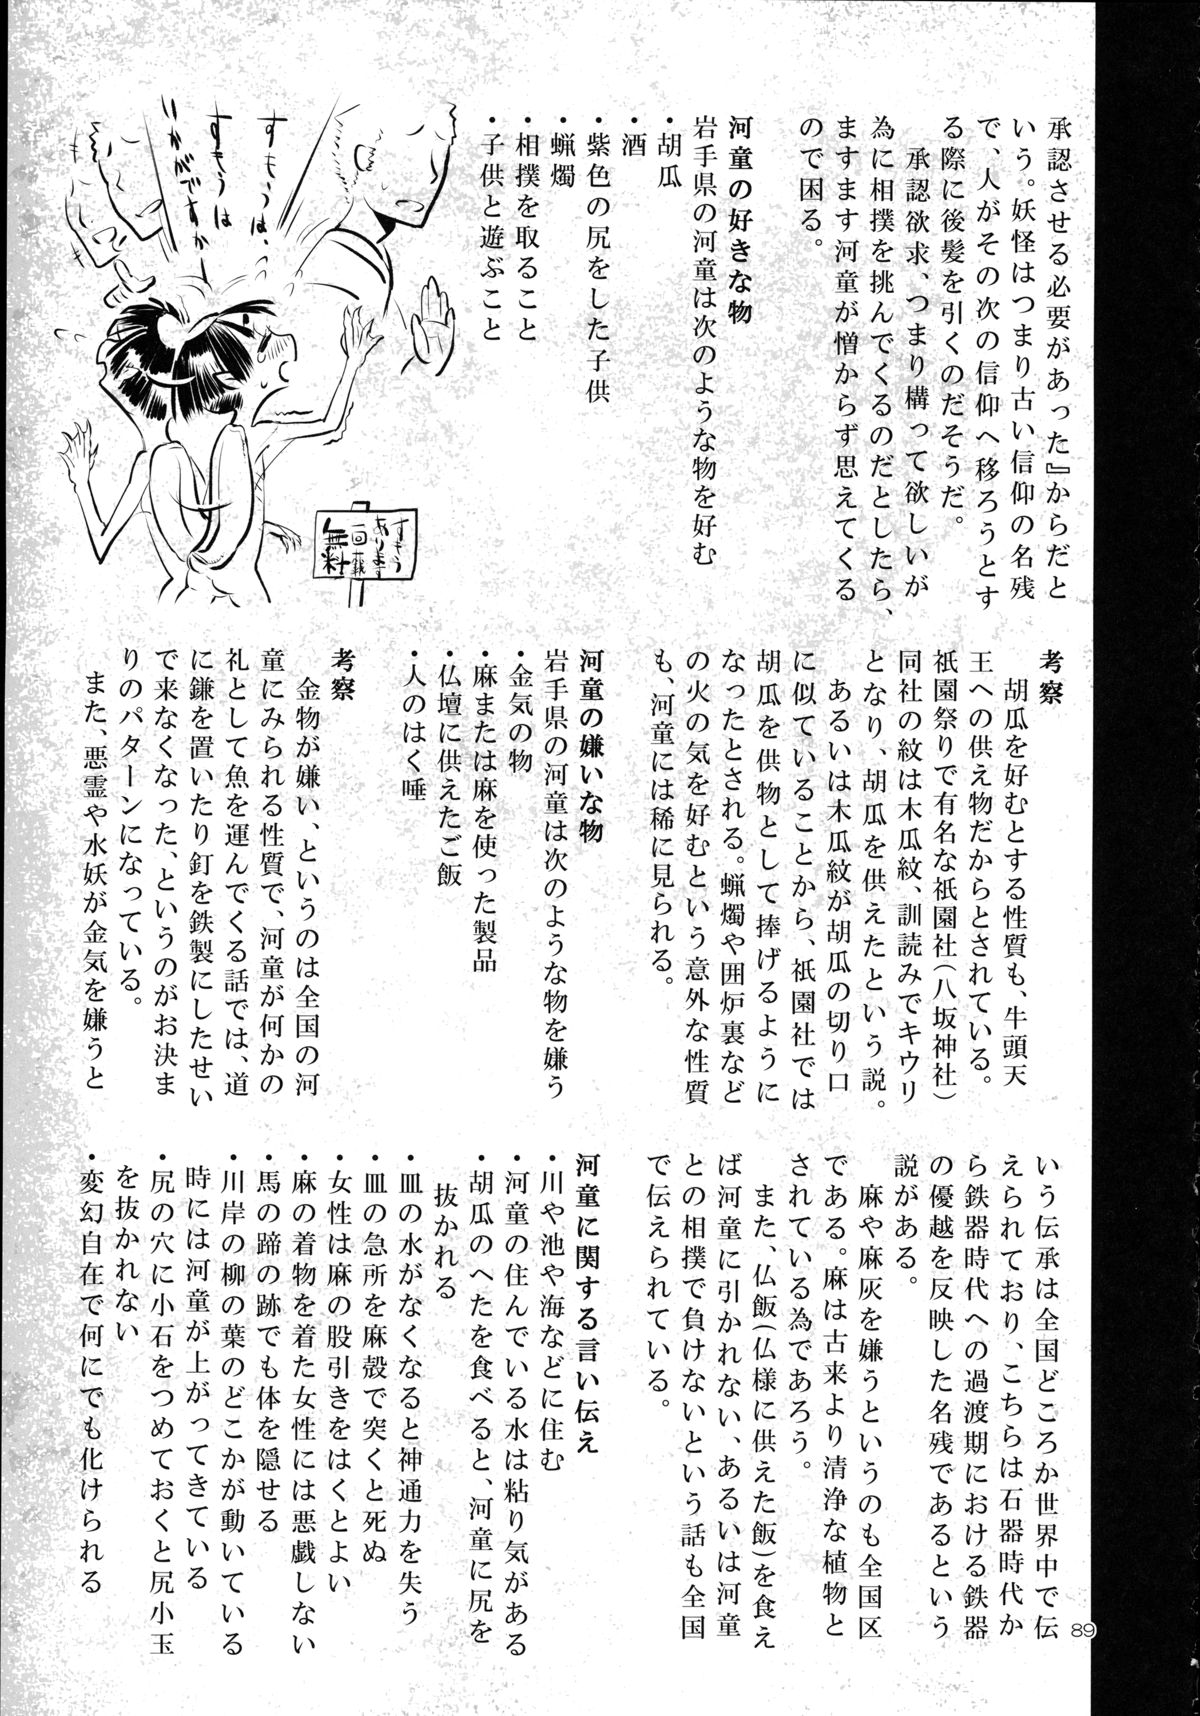 承認させる必要があった』からだと
いう。妖怪はつまり古い信仰の名残
で、人がその次の信仰へ移ろうとす
る際に後髪を引くのだそうだ。
承認欲求、つまり構って欲しいが
為に相撲を挑んでくるのだとしたら、
ますます河童が憎からず思えてくる
ので困る。
河童の好きな物
岩手県の河童は次のような物を好む
・胡瓜
・酒
・紫色の尻をした子供
・蝋燭
・相撲を取ること
・子供と遊ぶこと
すもうは、
すもうは
いかがですかー
すもう
あります
一回
無料
考察
胡瓜を好むとする性質も、牛頭天
王への供え物だからとされている。
祇園祭りで有名な祇園社(八坂神社)
同社の紋は木瓜紋、訓読みでキウリ
となり、胡瓜を供えたという説。
あるいは木瓜紋が胡瓜の切り口
に似ていることから、祇園社では
胡瓜を供物として捧げるように
なったとされる。蝋燭や囲炉裏など
の火の気を好むという意外な性質
も、河童には稀に見られる。
河童の嫌いな物
岩手県の河童は次のような物を嫌う
・金気の物
・麻または麻を使った製品
・仏壇に供えたご飯
・人のはく唾
考察
金物が嫌い、というのは全国の河
童にみられる性質で、河童が何かの
礼として魚を運んでくる話では、道
に鎌を置いたり釘を鉄製にしたせい
で来なくなった、というのがお決ま
りのパターンになっている。
また、悪霊や水妖が金気を嫌うと
いう伝承は全国どころか世界中で伝
えられており、こちらは石器時代か
ら鉄器時代への過渡期における鉄器
の優越を反映した名残であるという
説がある。
麻や麻灰を嫌うというのも全国区
である。麻は古来より清浄な植物と
されている為であろう。
また、仏飯(仏様に供えた飯)を食え
ば河童に引かれない、あるいは河童
との相撲で負けないという話も全国
で伝えられている。
河童に関する言い伝え
・川や池や海などに住む
・河童の住んでいる水は粘り気がある
・胡瓜のへたを食べると、河童に尻を
抜かれる
・皿の水がなくなると神通力を失う
・皿の急所を麻殻で突くと死ぬ
・女性は麻の股引きをはくとよい
・麻の着物を着た女性には悪戯しない
・馬の蹄の跡でも体を隠せる
・川岸の柳の葉のどこかが動いている
時には河童が上がってきている
・尻の穴に小石をつめておくと尻小玉
を抜かれない
・変幻自在で何にでも化けられる
89